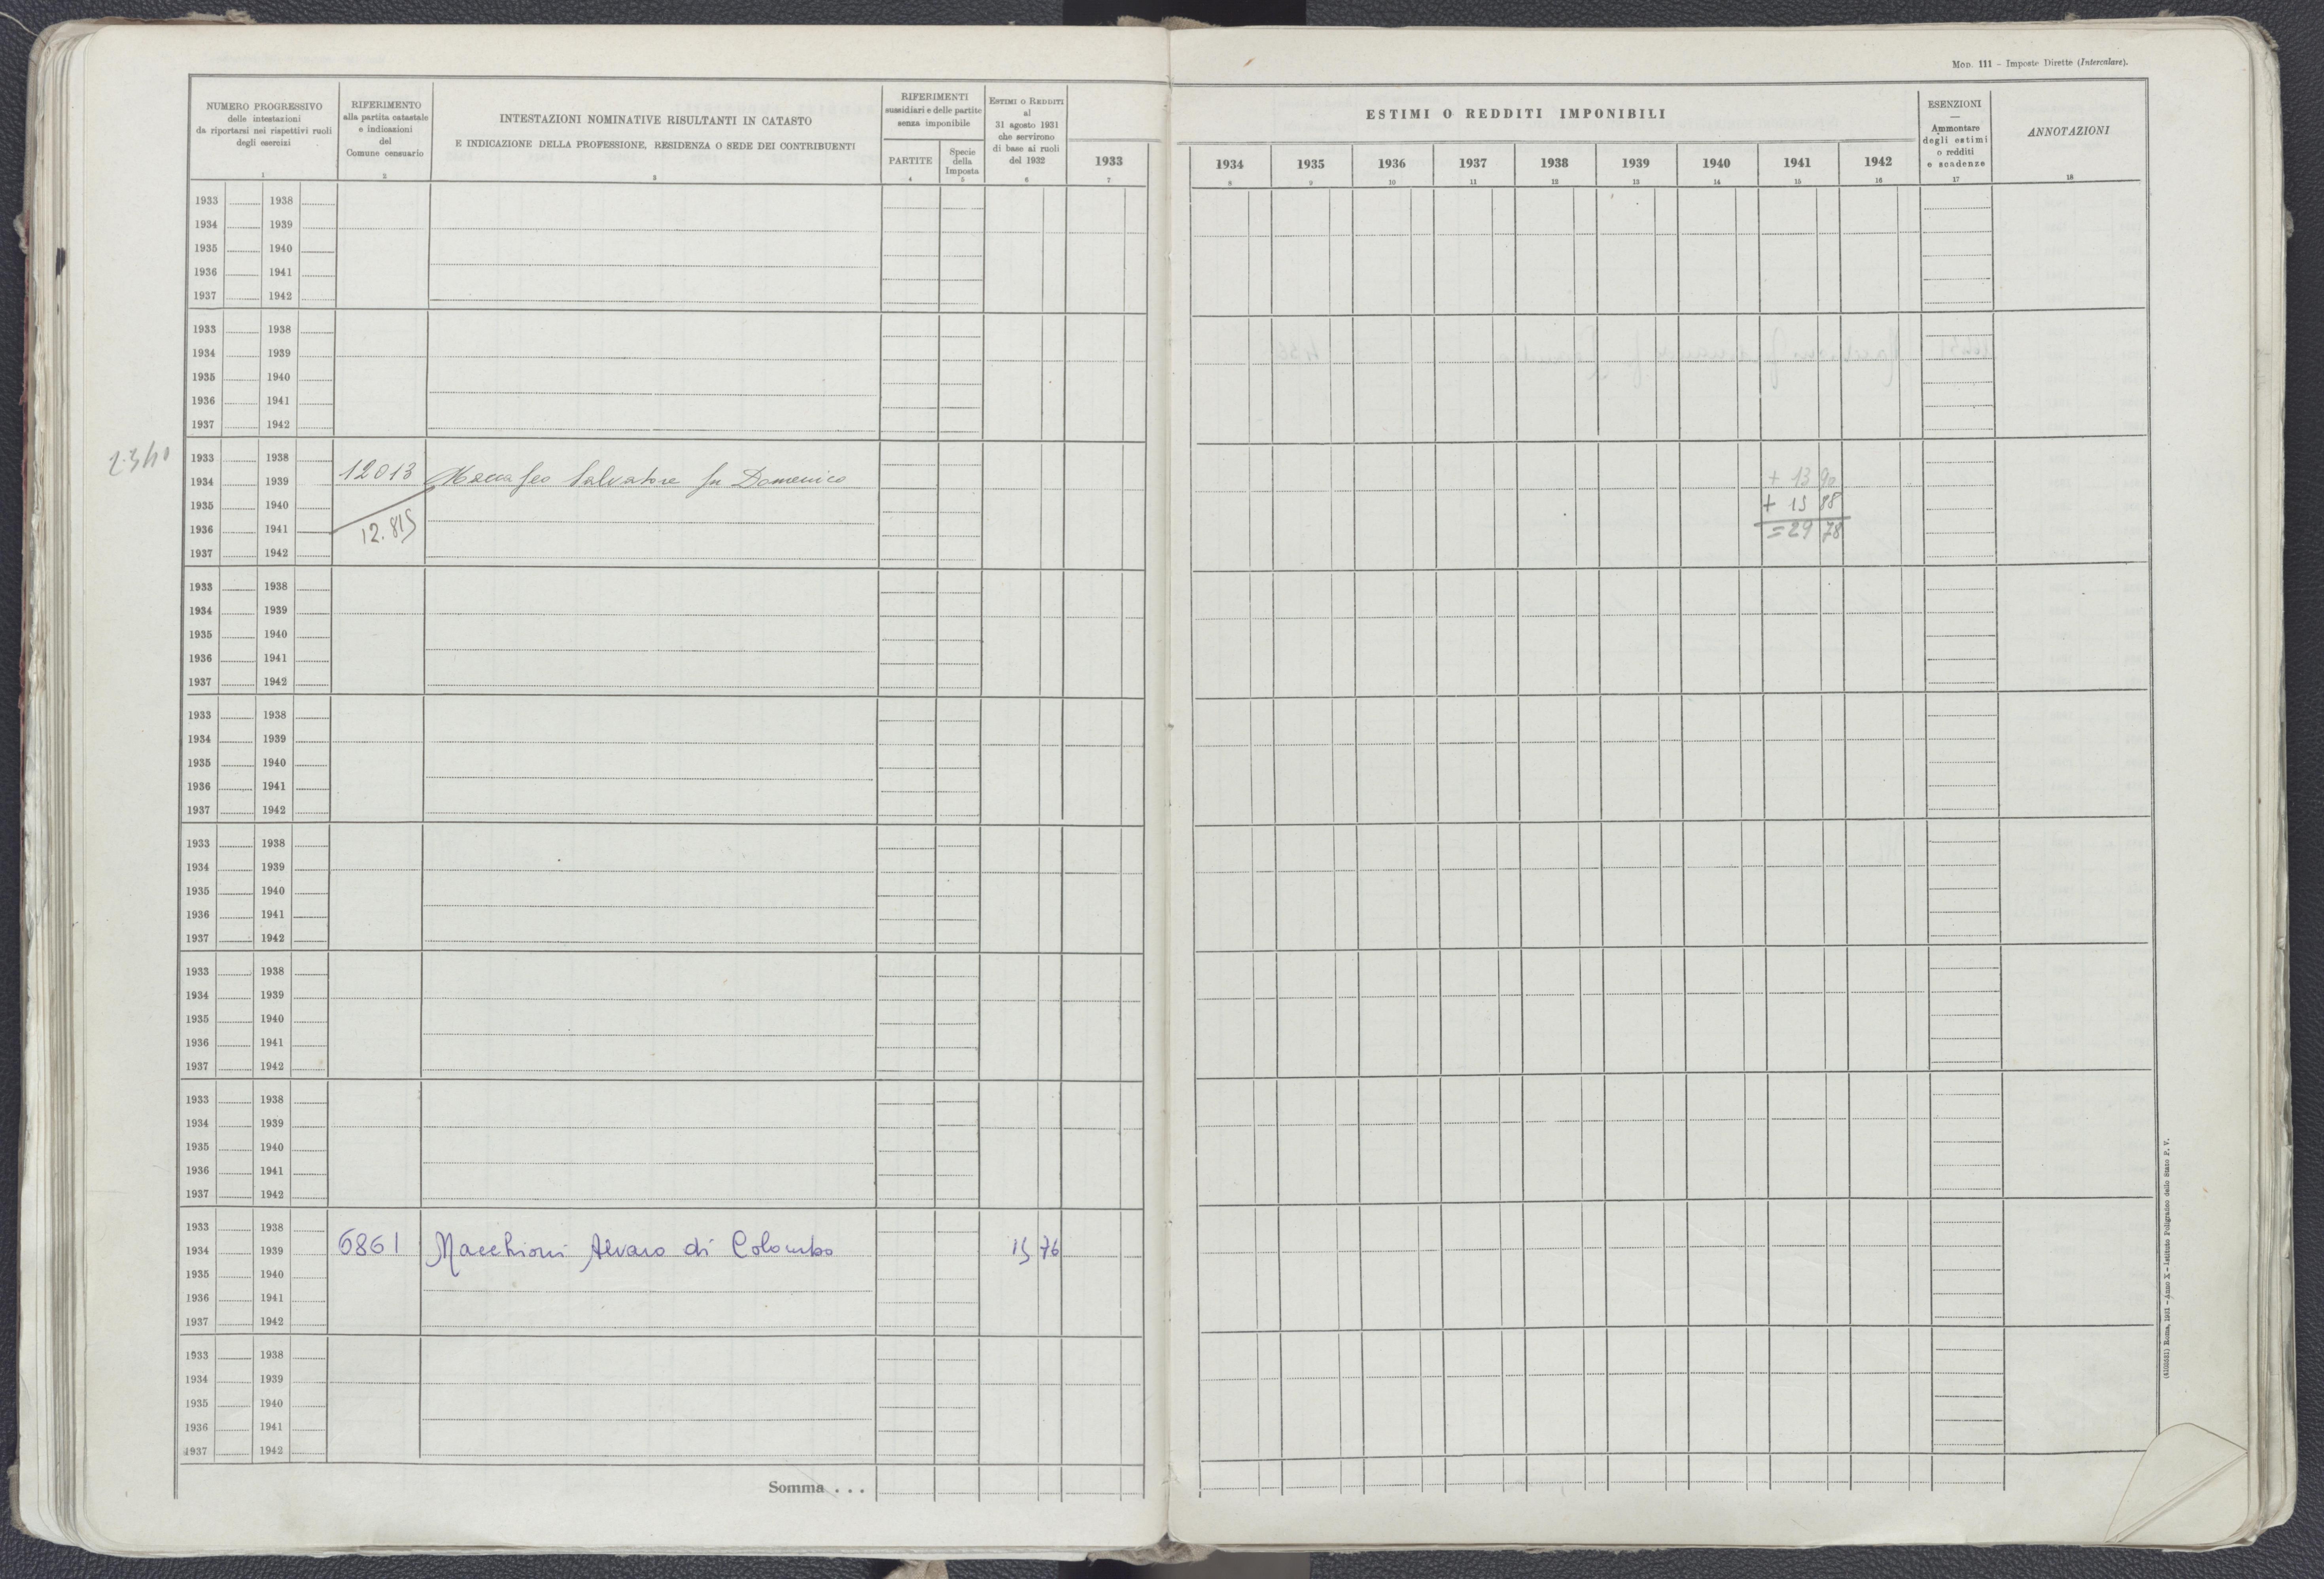 Mod. 111 – Imposte Dirette (Intercalare).
NUMERO PROGRESSIVO
delle intestazioni
da riportarsi nei rispettivi ruoli
degli esercizi
1
RIFERIMENTO
alla partita catastale
e indicazioni
del
Comune censuario
2
INTESTAZIONI NOMINATIVE RISULTANTI IN CATASTO
E INDICAZIONE DELLA PROFESSIONE, RESIDENZA O SEDE DEI CONTRIBUENTI
3
RIFERIMENTI
sussidiari e delle partite
senza imponibile
PARTITE
4
Specie
della
Imposta
5
ESTIMI O REDDITI
al
31 agosto 1931
che servirono
di base ai ruoli
del 1932
6
ESTIMI O REDDITI IMPONIBILI
1933 1934 1935 1936 1937 1938 1939 1940 1941 1942
7 8 9 10 11 12 13 14 15 16
ESENZIONI
—
Ammontare
degli estimi
o redditi
e scadenze
17
ANNOTAZIONI
18
1933 1938
1934 1939
1935 1940
1936 1941
1937 1942
1933 1938
1934 1939
1935 1940
1936 1941
1937 1942
1933 1938
1934 1939 12013 Salvatore fu Domenico + 13 90
1935 1940 + 15 88
1936 1941 12.815 = 29 78
1937 1942
1933 1938
1934 1939
1935 1940
1936 1941
1937 1942
1933 1938
1934 1939
1935 1940
1936 1941
1937 1942
1933 1938
1934 1939
1935 1940
1936 1941
1937 1942
1933 1938
1934 1939
1935 1940
1936 1941
1937 1942
1933 1938
1934 1939
1935 1940
1936 1941
1937 1942
1933 1938
1934 1939 6861 Macchioni Alvaro di Colombo 15 76
1935 1940
1936 1941
1937 1942
1933 1938
1934 1939
1935 1940
1936 1941
1937 1942
Somma . . .
Roma, 1931 – Anno X – Istituto Poligrafico dello Stato P. V.